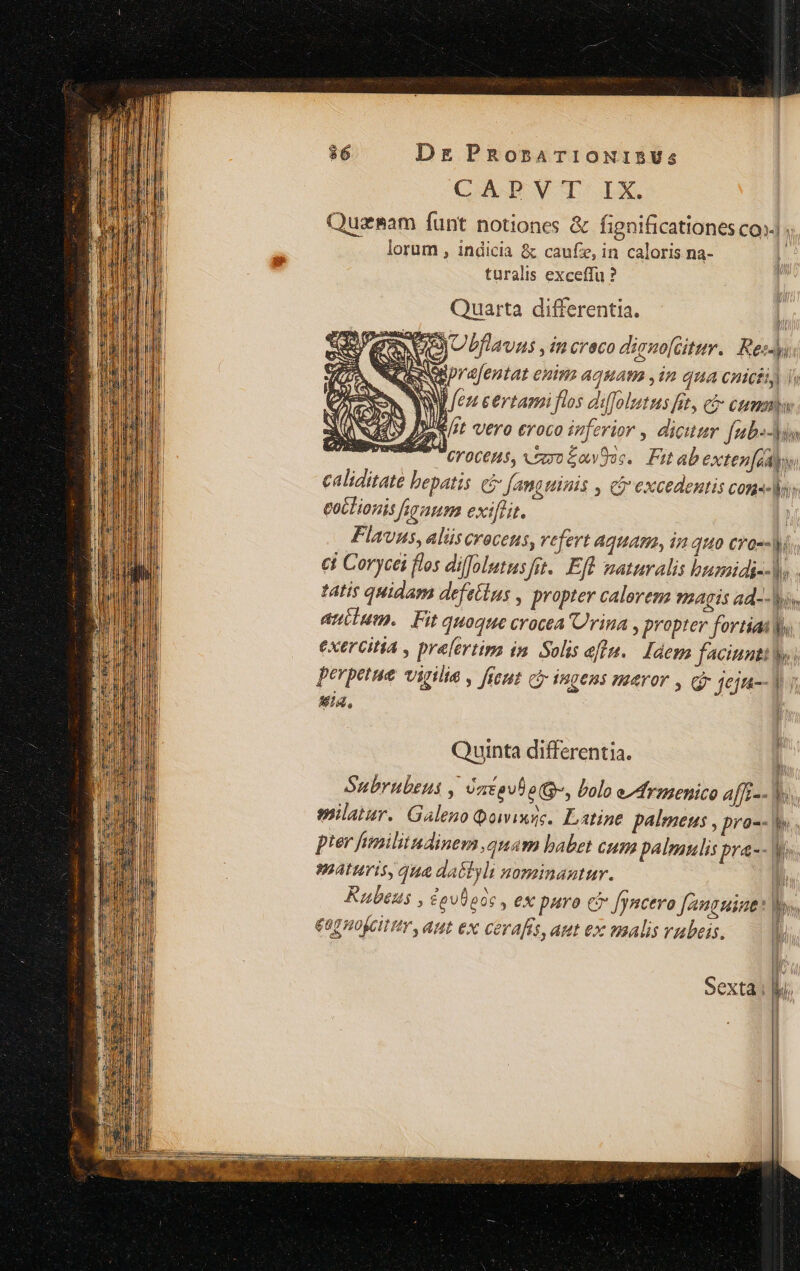 36 DE PROBATIONIBUS
CAPVT IX.
Quænam ſunt notiones & ſignificationes co-
lorum, indicia & cauſæ, in caloris na-
turalis exceſſu?
Quarta differentia.
SUbflavus, in croco dignoſcitur. Re-
præſentat enim aquam, in qua cnici,
ſeu certami flos diſſolutus ſit, & cum
ſit vero croco inferior, dicitur ſub-
croceus, ὑπόξανθος. Fit ab extenſa
caliditate hepatis & ſanguinis, & excedentis con-
coctionis ſignum exiſtit.
Flavus, aliis croceus, refert aquam, in quo cro-
ci Corycei flos diſſolutus ſit. Eſt naturalis humidi-
tatis quidam defectus, propter calorem magis ad-
auctum. Fit quoque crocea Urina, propter fortia
exercitia, præſertim in Solis æſtu. Idem faciunt
perpetuæ vigiliæ, ſicut & ingens mæror, & jeju-
nia.
Quinta differentia.
Subrubeus, ὑπέρυθρος, bolo Armenico aſſi-
milatur. Galeno Φοινικὸς. Latine palmeus, pro-
pter ſimilitudinem, quam habet cum palmulis præ-
maturis, quæ dactyli nominantur.
Rubeus, ἐρυθρὸς, ex puro & ſyncero ſanguine
cognoſcitur, aut ex ceraſis, aut ex malis rubeis.
Sexta